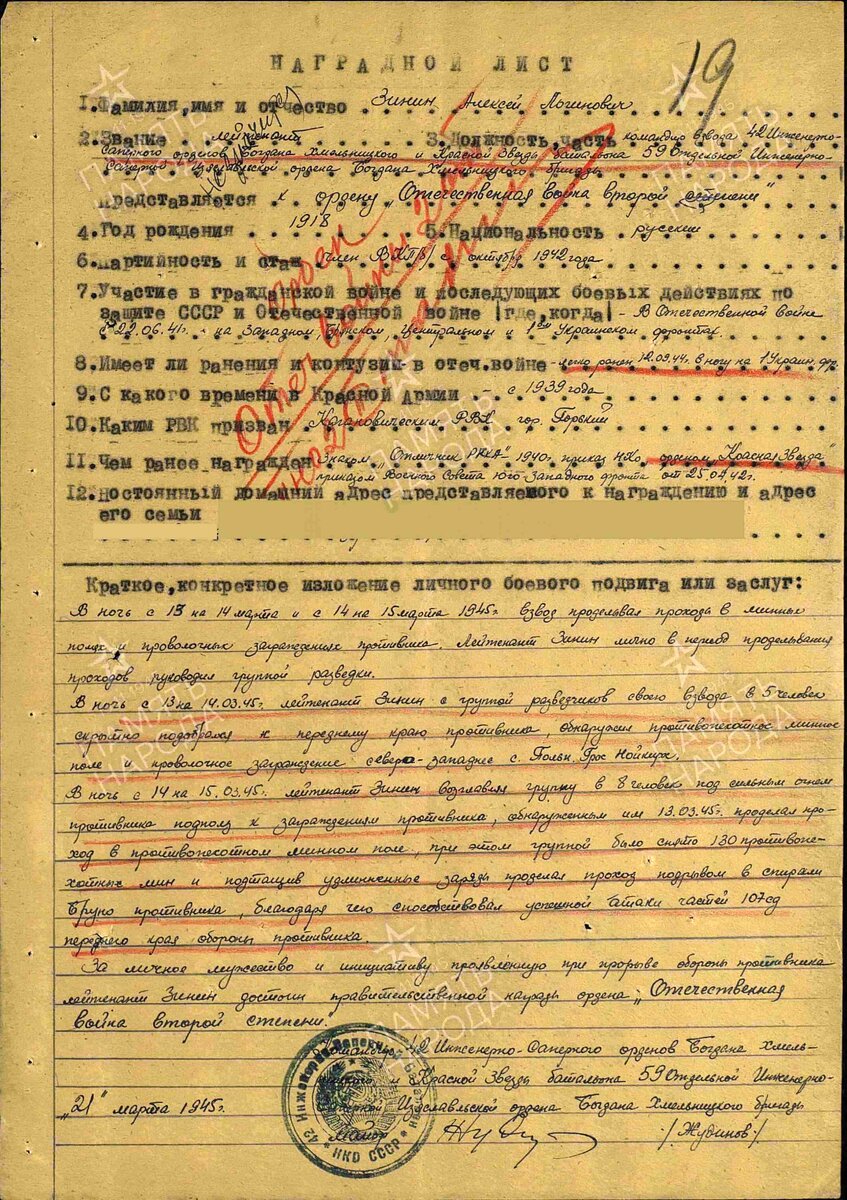 19
НАГРАДНОЙ ЛИСТ
1.Фамилия,имя и отчество Зинин Алексей Логинович
2.Звание лейтенант 3.Должность,часть командир взвода 42 Инженерно-
Саперного орденов Богдана Хмельницкого и Красной Звезды батальона 59 Отдельной Инженерно-
Саперной Изяславской ордена Богдана Хмельницкого бригады
Представляется к ордену „Отечественная война второй степени"
4.Год рождения 1918 5.Национальность русский
6.Партийность и стаж член ВКП/б/ с октября 1942 года
7.Участие в гражданской войне и последующих боевых действиях по
защите СССР и Отечественной войне /где,когда/ - В Отечественной войне
с 22.06.41г. на Западном, Брянском, Центральном и 1ом Украинском фронтах.
8.Имеет ли ранения и контузии в отеч.войне - легко ранен 12.09.44г. в ногу на 1 Украин. фр.
9.С какого времени в Красной Армии - с 1939 года
10.Каким РВК призван Кагановическим РВК гор. Горький
11.Чем ранее награжден Знаком „Отличник РККА" 1940г. приказ НКО, орденом „Красная Звезда"
приказом Военного Совета Юго-Западного фронта от
12.Постоянный домашний адрес представляемого к награждению и адрес
его семьи
Орден
Отеч войны
2й степени
Краткое,конкретное изложение личного боевого подвига или заслуг:
В ночь с 13 на 14 марта и с 14 на 15 марта 1945г. взвод проделывал прохода в минных
полях и проволочных заграждениях противника. Лейтенант Зинин лично в период проделывания
проходов руководил группой разведки.
В ночь с 13 на 14.03.45г. лейтенант Зинин с группой разведчиков своего взвода в 5 человек
скрытно подобрался к переднему краю противника, обнаружил противопехотное минное
поле и проволочное заграждение северо-западнее с. Польн. Грос Нойкирх.
В ночь с 14 на 15.03.45г. лейтенант Зинин возглавил группу в 8 человек под сильным огнем
противника подполз к заграждениям противника, обнаруженным им 13.03.45г. проделал про-
ход в противопехотном минном поле, при этом группой было снято 130 противопе-
хотных мин и подтащив удлиненные заряды проделал проход подрывом в спирали
Бруно противника, благодаря чего способствовал успешной атаки частей 107сд
переднего края обороны противника.
За личное мужество и инициативу проявленную при прорыве обороны противника
лейтенант Зинин достоин правительственной награды ордена „Отечественная
война второй степени."
Командир 42 Инженерно-Саперного орденов Богдана Хмель-
ницкого и Красной Звезды батальона 59 Отдельной Инженерно-
„21" марта 1945г. Саперной Изяславской ордена Богдана Хмельницкого бригады
майор /Жудинов/
42 Инженерно-Саперный Батальон
НКО СССР
ПАМЯТЬ НАРОДА